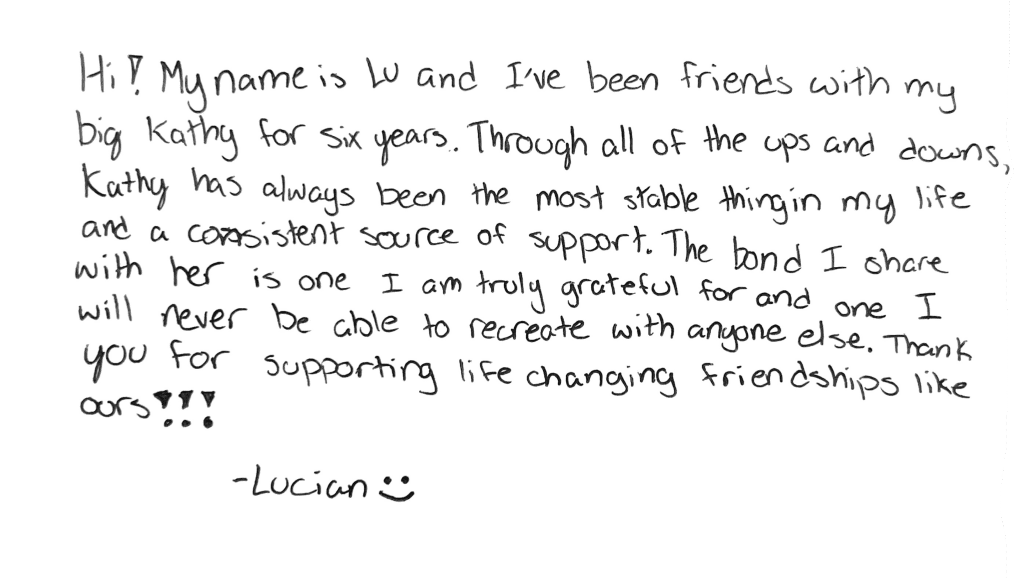 Hi! My name is Lu and I've been friends with my
big Kathy for six years. Through all of the ups and downs,
Kathy has always been the most stable thing in my life
and a consistent source of support. The bond I share
with her is one I am truly grateful for and one I
will never be able to recreate with anyone else. Thank
you for supporting life changing friendships like
ours!!!
-Lucian :)